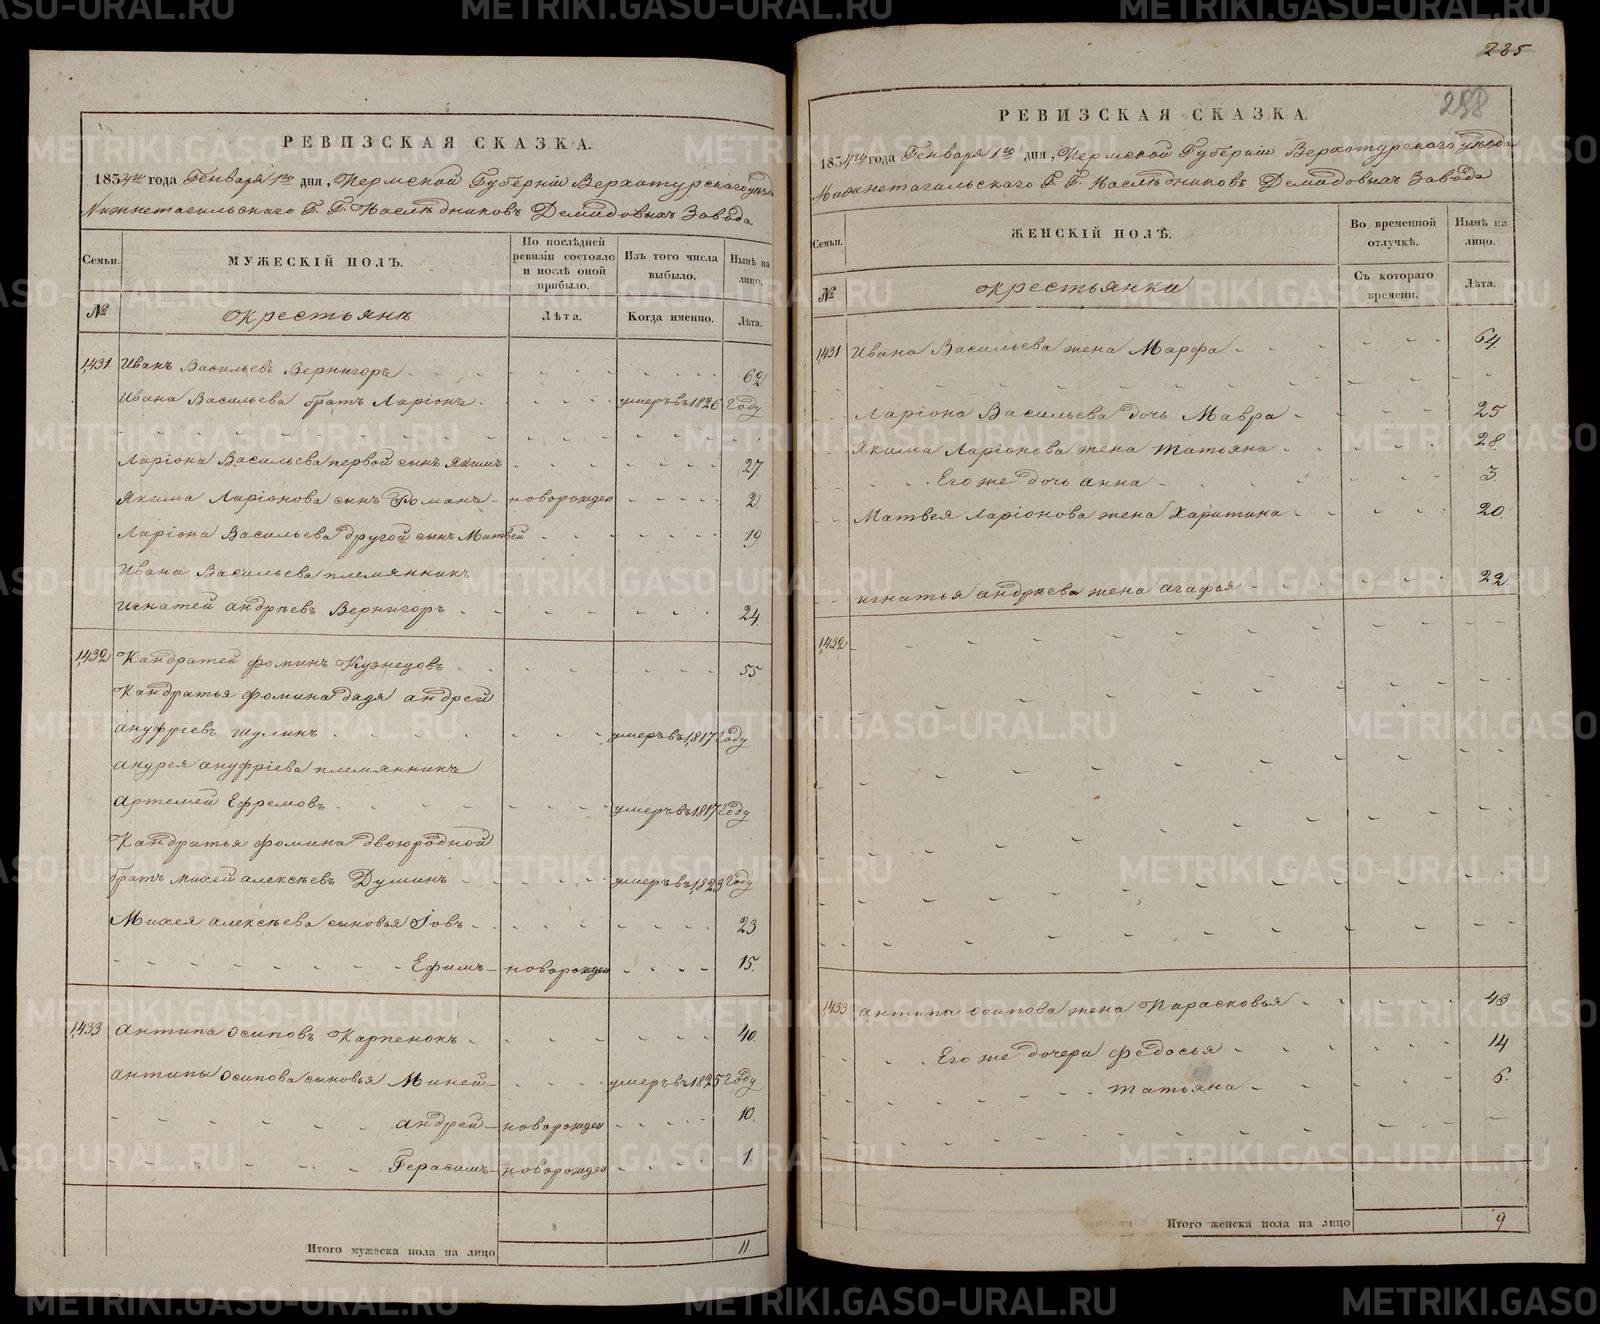 РЕВИЗСКАЯ СКАЗКА.
1834го года Генваря 1го дня, Пермской Губерніи Верхотурскаго уѣзда
Нижнетагильскаго Г. Г. Наслѣдниковъ Демидовыхъ Завода
Семьи.
МУЖЕСКІЙ ПОЛЪ.
По послѣдней ревизіи состояло и послѣ оной прибыло.
Изъ того числа выбыло.
Нынѣ на лицо.
№
Окрестьянѣ
Лѣта.
Когда именно.
Лѣта.
1,431 Иванъ Васильевъ Вернигоръ 62
Ивана Васильева братъ Ларіонъ умеръ въ 1826 Году
Ларіона Васильева первой сынъ Якимъ 27
Якима Ларіонова сынъ Романъ новорожден 2
Ларіона Васильева другой сынъ Матвей 19
Ивана Васильева племянникъ
Игнатей Андрѣевъ Вернигоръ 24.
1,432 Кандратей Фоминъ Кузнецовъ 55
Кандратья Фомина дядя Андрей
Ануфріевъ Шулинъ умеръ въ 1,817 Году
Андрея Ануфріева племянникъ
Артемей Ефремовъ умеръ въ 1817 Году
Кандратья Фомина двоюродной
братъ Михей Алексѣевъ Душинъ умеръ въ 1,823 Году
Михея Алексѣева сыновья Іовъ 23
Ефимъ новорожден 15.
1,433 Антипа Осиповъ Карпенокъ 40.
Антипы Осипова сыновья Миней умеръ въ 1825 Году
Андрей новорожден 10.
Герасимъ новорожден 1.
Итого мужеска пола на лицо 11
225
298
РЕВИЗСКАЯ СКАЗКА.
1834го года Генваря 1го дня, Пермской Губерніи Верхотурскаго уѣзда
Нижнетагильскаго Г. Г. Наслѣдниковъ Демидовыхъ Завода
Семьи.
ЖЕНСКІЙ ПОЛЪ.
Во временной отлучкѣ.
Нынѣ на лицо.
№
Окрестьянки
Съ котораго времени.
Лѣта.
1,431 Ивана Васильева жена Марфа 64.
Ларіона Васильева дочь Мавра 25
Якима Ларіонова жена Татьяна 28.
Его же дочь Анна 3.
Матвея Ларіонова жена Харитина 20.
Игнатья Андрѣева жена Агафья 22.
1,432
1,433 Антипы Осипова жена Парасковья 43
Его же дочери Федосья 14
Татьяна 6.
Итого женска пола на лицо 9
METRIKI.GASO-URAL.RU